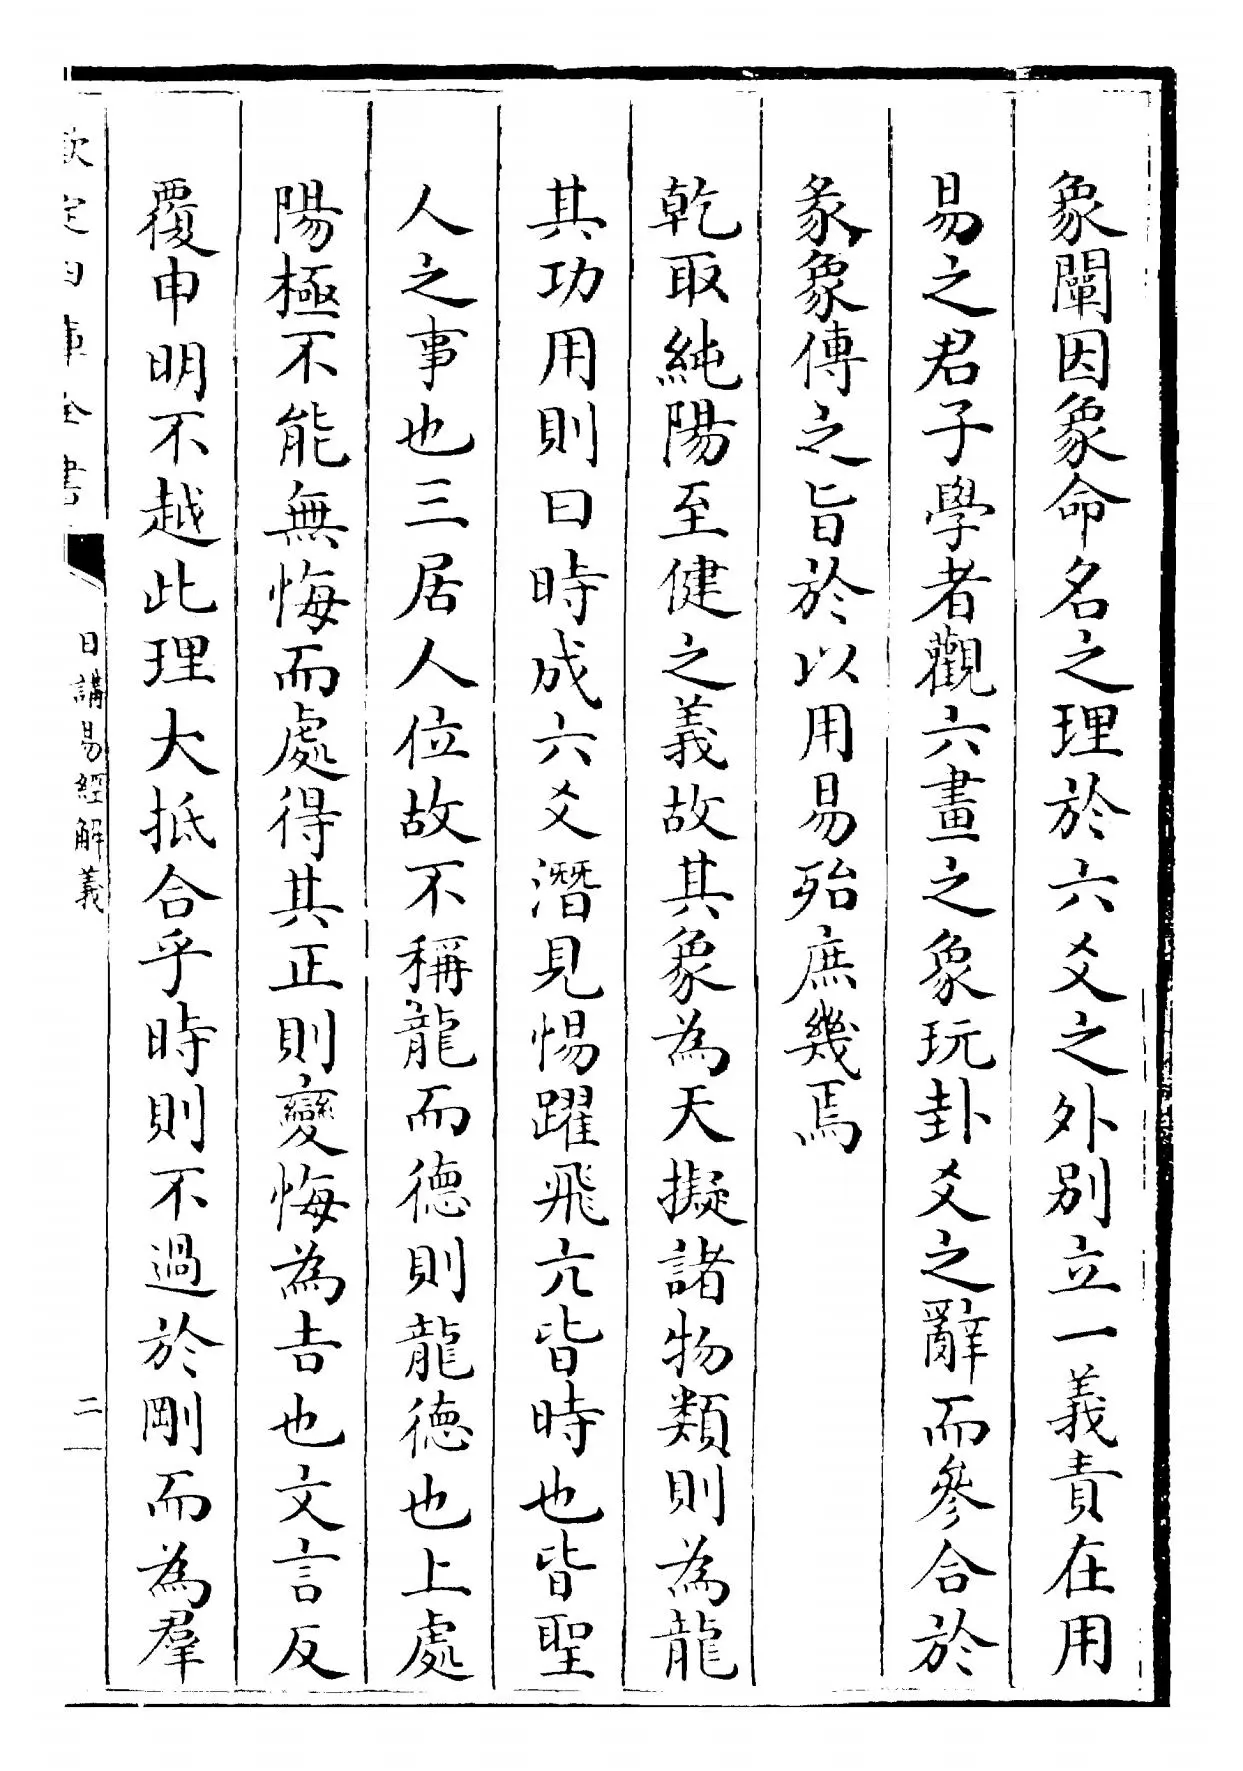 象闡因象命名之理於六爻之外別立一義責在用
易之君子學者觀六畫之象玩卦爻之辭而參合於
彖象傳之旨於以用易殆庶幾焉
乾取純陽至健之義故其象為天擬諸物類則為龍
其功用則曰時成六爻潛見惕躍飛亢皆時也皆聖
人之事也三居人位故不稱龍而德則龍德也上處
陽極不能無悔而處得其正則變悔為吉也文言反
覆申明不越此理大抵合乎時則不過於剛而為羣
欽定四庫全書
日講易經解義
二